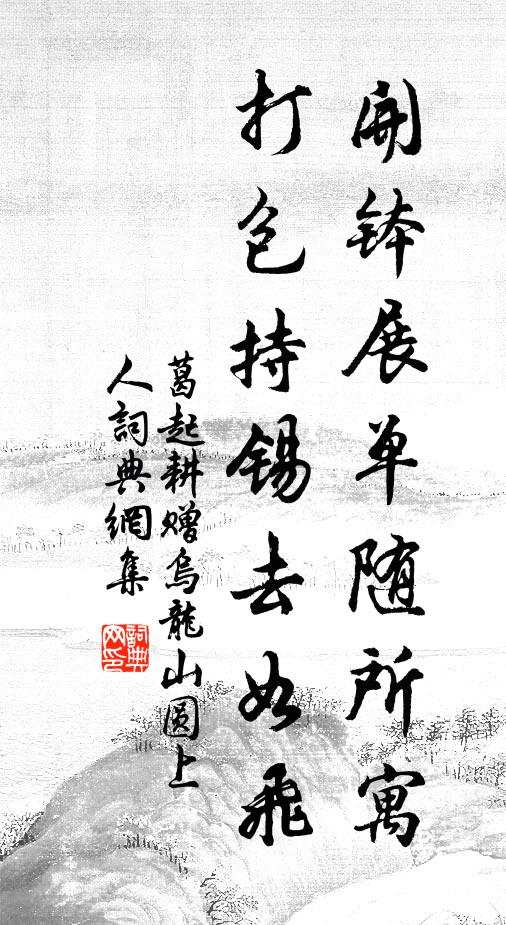 開鉢展单随所寓
打包持錫去如飛
葛起耕贈烏龍山圓上
人詞典網集
詞典
网印